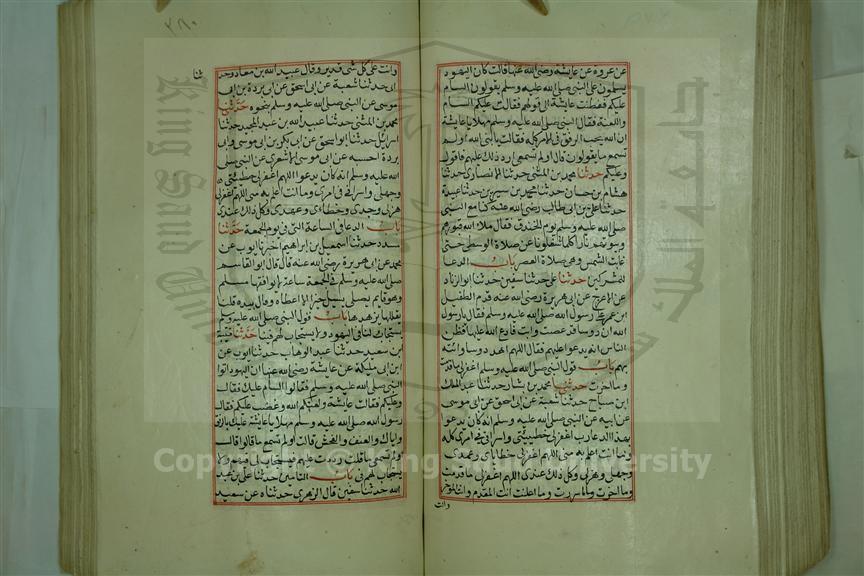 عن عروة عن عايشة رضي الله عنها قالت كان اليهود
يسلمون على النبي صلى الله عليه وسلم يقولون السام
عليكم ففطنت عايشة الى قولهم فقالت عليكم السام
واللعنة فقال النبي صلى الله عليه وسلم مهلا يا عايشة
ان الله يحب الرفق في الامر كله فقالت يا نبي الله اولم
تسمع ما يقولون قال اولم تسمعي ارد ذلك عليهم فاقول
وعليكم حدثنا محمد بن المثنى حدثنا الانصاري حدثنا
هشام بن حسان حدثنا محمد بن سيرين حدثنا عبيدة
حدثنا علي بن ابي طالب رضي الله عنه كنا مع النبي
صلى الله عليه وسلم يوم الخندق فقال ملا الله قبورهم
وبيوتهم نارا كما شغلونا عن صلاة الوسطى حتى
غابت الشمس وهي صلاة العصر باب الدعا
للمشركين حدثنا علي حدثنا سفين حدثنا ابو الزناد
عن الاعرج عن ابي هريرة رضي الله عنه قدم الطفيل
ابن عمرو على رسول الله صلى الله عليه وسلم فقال يا رسول
الله ان دوسا قد عصت وابت فادع الله عليها فظن
الناس انه يدعو عليهم فقال اللهم اهد دوسا وائت
بهم باب قول النبي صلى الله عليه وسلم اغفر لي ما قدمت
وما اخرت حدثنا محمد بن بشار حدثنا عبد الملك
ابن صباح حدثنا شعبة عن ابي اسحق عن ابي موسى
عن ابيه عن النبي صلى الله عليه وسلم انه كان يدعو
بهذا الدعا رب اغفر لي خطيئتي واسرافي في امري كله
وما انت اعلم به مني اللهم اغفر لي خطاياي وعمدي
وجهلي وهزلي وكل ذلك عندي اللهم اغفر لي ما قدمت
وما اخرت وما اسررت وما اعلنت انت المقدم وانت الموخر
وانت
٢٨٠
وانت على كل شي قدير وقال عبيد الله بن معاذ وحد
ثنا
ابي حدثنا شعبة عن ابي اسحق عن ابي بردة بن ابي
موسى عن النبي صلى الله عليه وسلم بنحوه حدثنا
محمد بن المثنى حدثنا عبيد الله بن عبد المجيد حدثنا
اسرائل حدثنا ابو اسحق عن ابي بكر بن ابي موسى وابي
بردة احسبه عن ابي موسى الاشعري عن النبي صلى
الله عليه وسلم انه كان يدعو اللهم اغفر لي خطيئتي
وجهلي واسرافي في امري وما انت اعلم به مني اللهم اغفر لي
هزلي وجدي وخطاءي وعمدي وكل ذلك عندي
باب الدعا في الساعة التي في يوم الجمعة حدثنا
مسدد حدثنا اسمعيل بن ابراهيم اخبرنا ايوب عن
محمد عن ابي هريرة رضي الله عنه قال قال ابو القاسم
صلى الله عليه وسلم في الجمعة ساعة لا يوافقها مسلم
وهو قايم يصلي يسيل خيرا الا اعطاه وقال بيده قلنا
يقللها يزهدها باب قول النبي صلى الله عليه وسلم
يستجاب لنا في اليهود ولا يستجاب لهم فينا حدثنا قتيبة
بن سعيد حدثنا عبد الوهاب حدثنا ايوب عن
ابن ابي مليكة عن عايشة رضي الله عنها ان اليهود اتوا
النبي صلى الله عليه وسلم فقالوا السام عليك فقال
وعليكم فقالت عايشة السام عليكم ولعنكم الله وغضب عليكم فقال
رسول الله صلى الله عليه وسلم مهلا يا عايشة عليك بالرفق
واياك والعنف والفحش قالت اولم تسمع ما قالوا قال
اولم تسمعي ما قلت رددت عليهم فيستجاب لي فيهم ولا
يستجاب لهم في باب التامين حدثنا علي بن عبد
الله حدثنا سفين قال الزهري حدثناه عن سعيد
Copyright © King Saud University
King Saud University